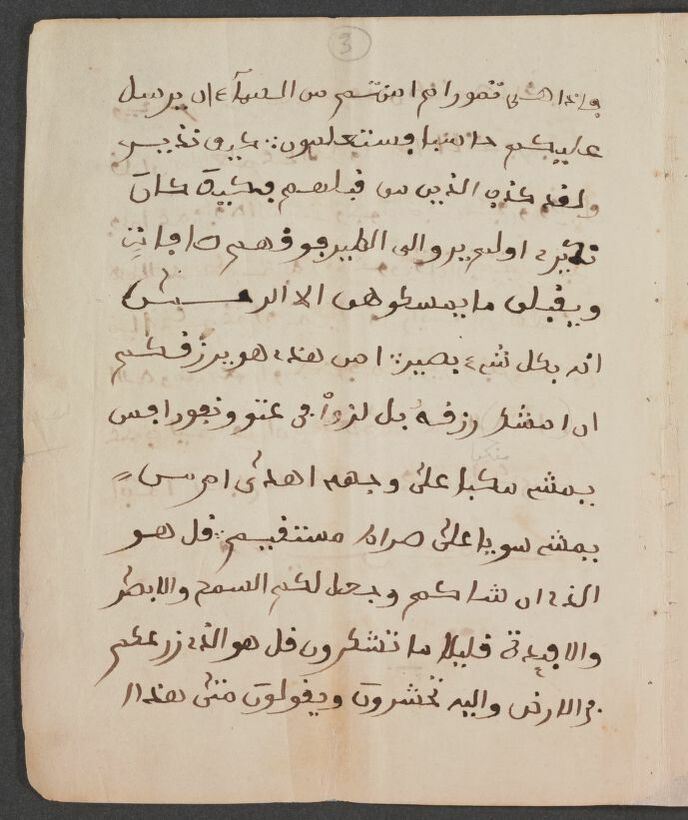 3
فاذا هي تمور ام امنتم من السماء ان يرسل
عليكم حاصبا فستعلمون كيف نذير
ولقد كذب الذين من قبلهم فكيف كان
نكير اولم يروا الى الطير فوقهم صافات
ويقبض ما يمسكوهن الا الرحمن
انه بكل شيء بصير امن هذا هو يرزقكم
ان امسك رزقه بل لزوا في عتو ونفور افمن
يمشي مكبا على وجهه اهدى امن
يمشي سويا على صراط مستقيم قل هو
الذي انشاكم وجعل لكم السمع والابصر
والافيدة قليلا ما تشكرون قل هو الذي زرعكم
في الارض واليه تحشرون ويقولون متى هذا